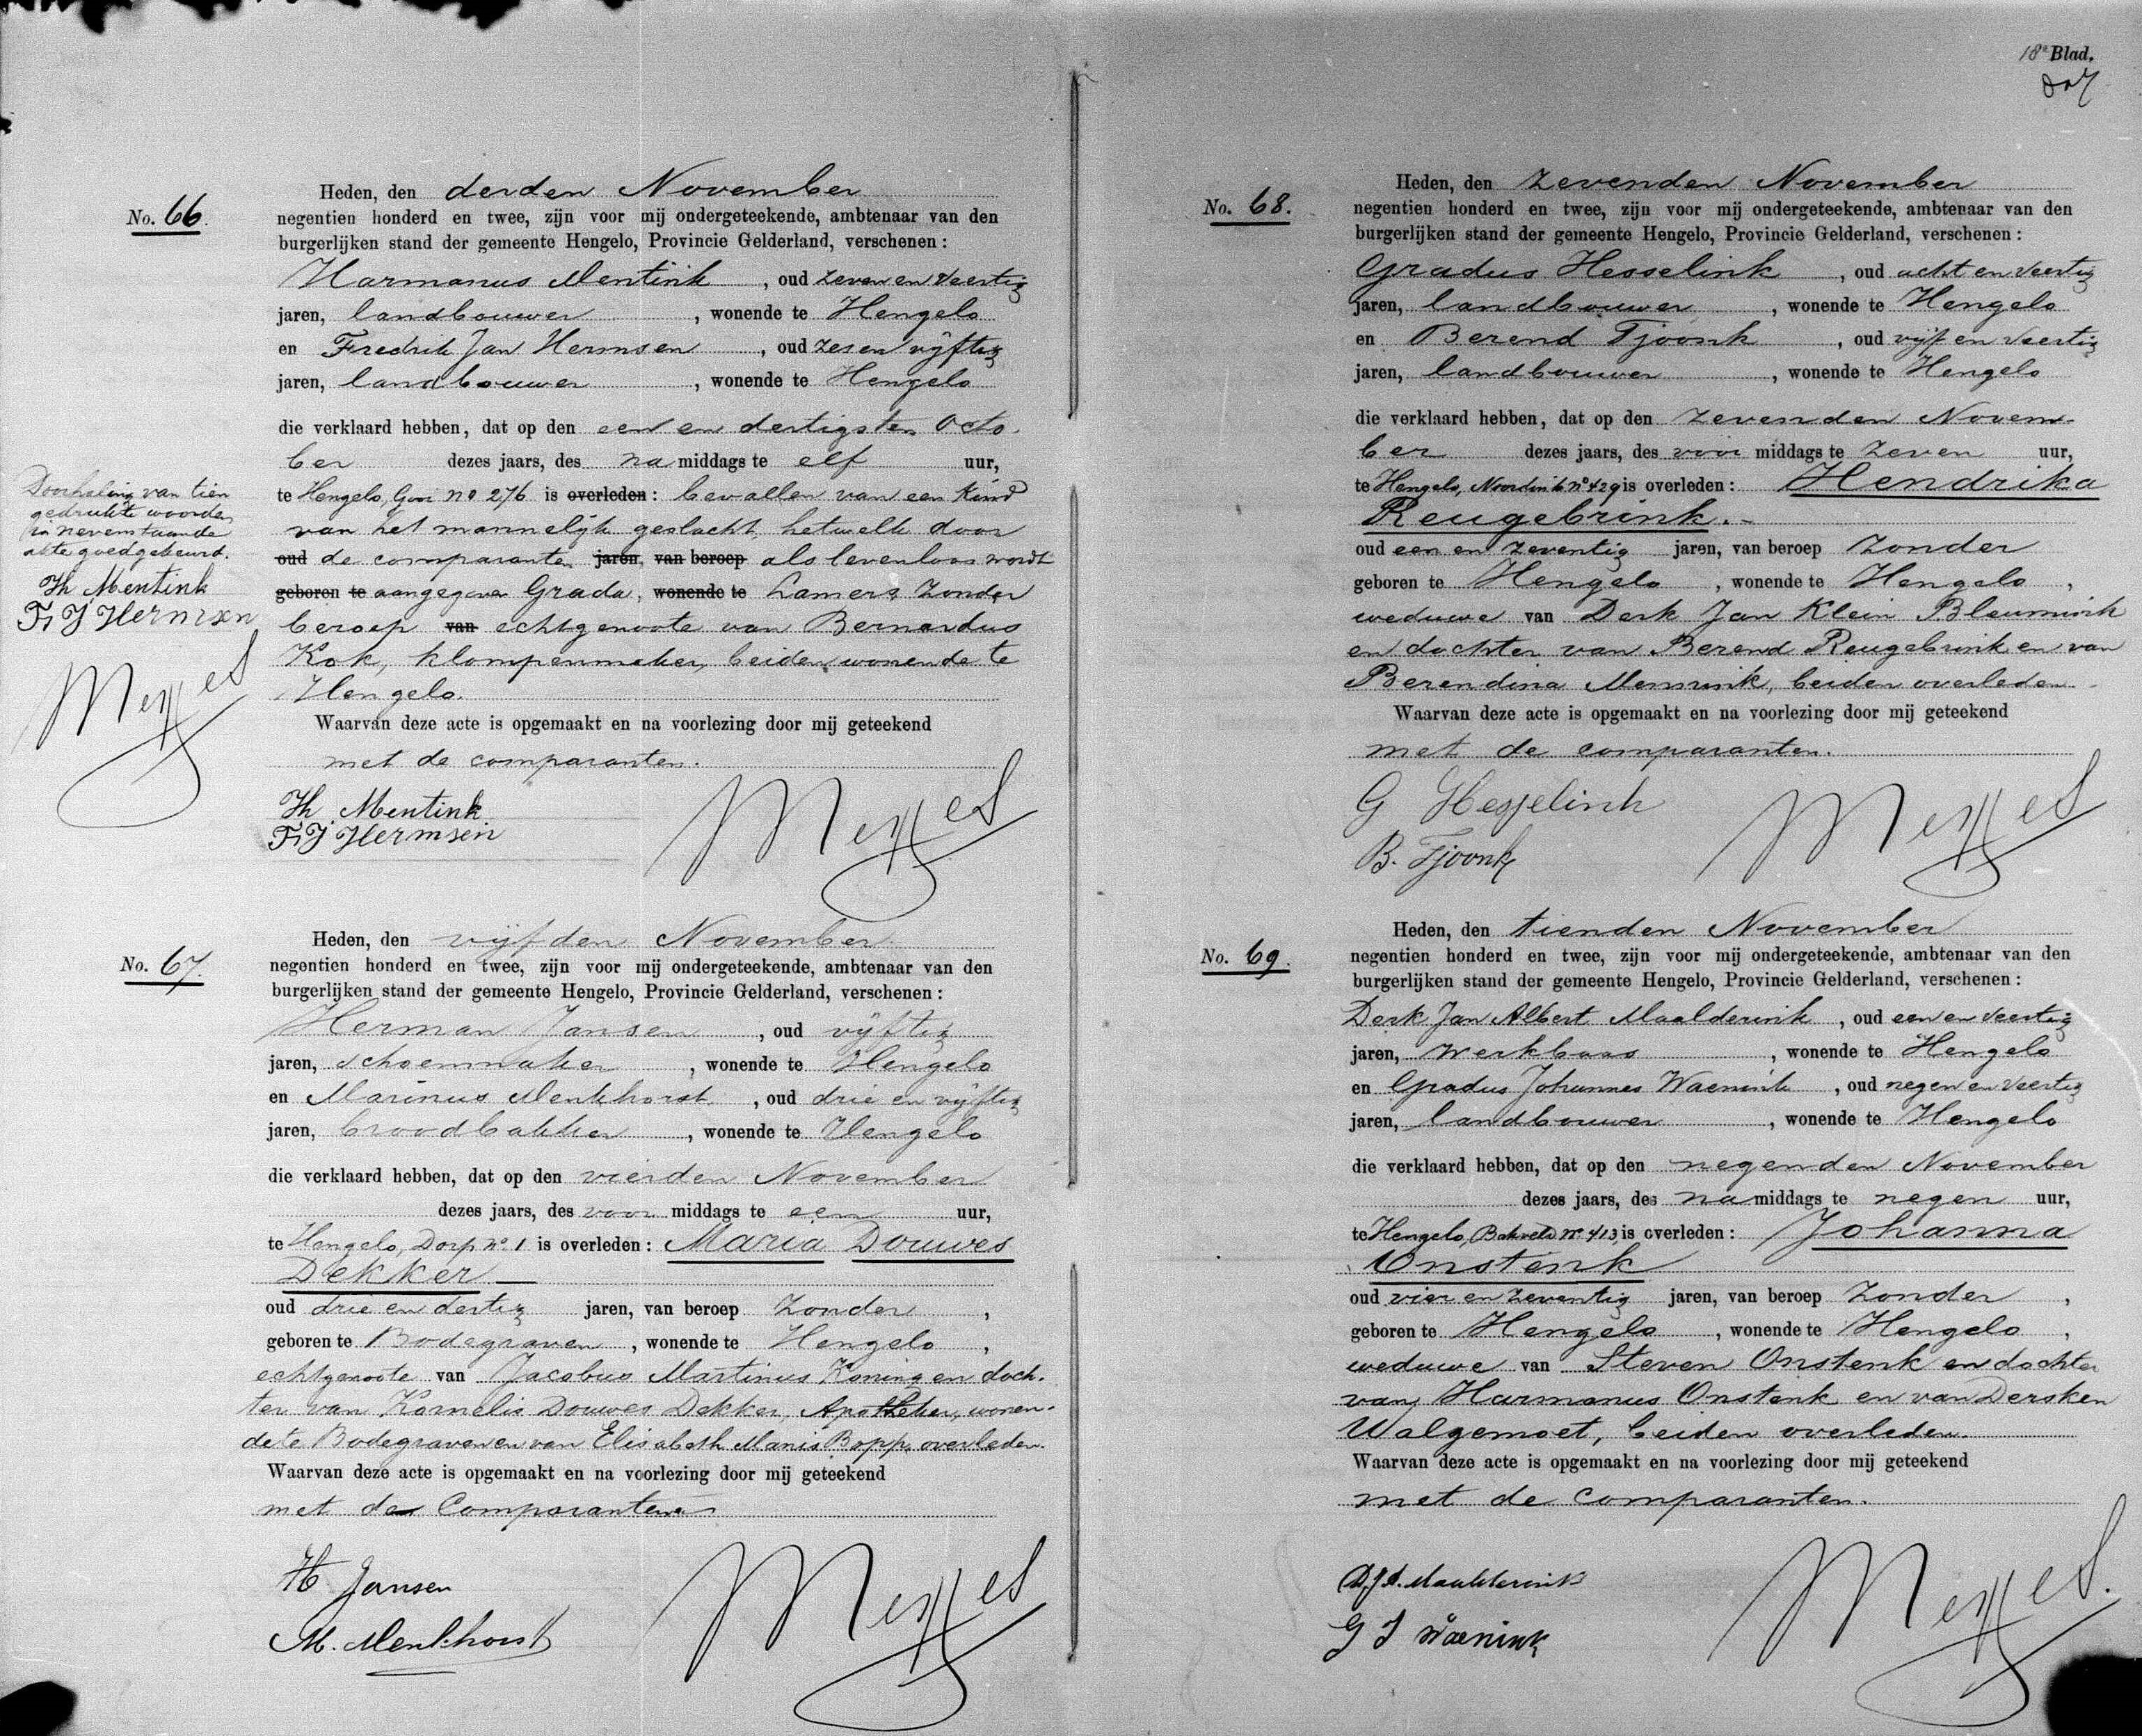 No. 66.
Heden, den derden November
negentien honderd en twee, zijn voor mij ondergeteekende, ambtenaar van den
burgerlijken stand der gemeente Hengelo, Provincie Gelderland, verschenen:
Harmanus Mentink, oud zeven en veertig
jaren, landbouwer, wonende te Hengelo
en Fredrik Jan Hermsen, oud zes en vijftig
jaren, landbouwer, wonende te Hengelo
die verklaard hebben, dat op den een en dertigsten Octo-
ber dezes jaars, des na middags te elf uur,
te Hengelo, Gooi no 276 is overleden: bevallen van een kind
van het mannelijk geslacht, hetwelk door
oud de comparanten jaren, van beroep als levenloos wordt
geboren te aangegeven Grada, wonende te Lamers zonder
beroep van echtgenoote van Bernardus
Kok, klompenmaker, beiden wonende te
Hengelo.
Waarvan deze acte is opgemaakt en na voorlezing door mij geteekend
met de comparanten.
Th Mentink
F J Hermsen
Doorhaling van tien
gedrukte woorden
in nevenstaande
akte goedgekeurd.
Th Mentink
F J Hermsen
No. 67.
Heden, den vijfden November
negentien honderd en twee, zijn voor mij ondergeteekende, ambtenaar van den
burgerlijken stand der gemeente Hengelo, Provincie Gelderland, verschenen:
Herman Jansen, oud vijftig
jaren, schoenmaker, wonende te Hengelo
en Marinus Menkhorst, oud drie en vijftig
jaren, broodbakker, wonende te Hengelo
die verklaard hebben, dat op den vierden November
dezes jaars, des voor middags te een uur,
te Hengelo, Dorp no 1 is overleden: Maria Douwes
Dekker
oud drie en dertig jaren, van beroep zonder,
geboren te Bodegraven, wonende te Hengelo,
echtgenoote van Jacobus Martinus Koning en doch-
ter van Kornelis Douwes Dekker, Apotheker, wonen-
de te Bodegraven en van Elisabeth Maria Bopp, overleden.
Waarvan deze acte is opgemaakt en na voorlezing door mij geteekend
met de Comparanten
H Jansen
M. Menkhorst
18e Blad.
No. 68.
Heden, den zevenden November
negentien honderd en twee, zijn voor mij ondergeteekende, ambtenaar van den
burgerlijken stand der gemeente Hengelo, Provincie Gelderland, verschenen:
Gradus Hesselink, oud acht en veertig
jaren, landbouwer, wonende te Hengelo
en Berend Tjoonk, oud vijf en veertig
jaren, landbouwer, wonende te Hengelo
die verklaard hebben, dat op den zevenden Novem-
ber dezes jaars, des voor middags te zeven uur,
te Hengelo, Noordink no 429 is overleden: Hendrika
Reugebrink.-
oud een en zeventig jaren, van beroep zonder
geboren te Hengelo, wonende te Hengelo,
weduwe van Derk Jan Klein Bleumink
en dochter van Berend Reugebrink en van
Berendina Mensink, beiden overleden.
Waarvan deze acte is opgemaakt en na voorlezing door mij geteekend
met de comparanten.
G Hesselink
B. Tjoonk
No. 69.
Heden, den tienden November
negentien honderd en twee, zijn voor mij ondergeteekende, ambtenaar van den
burgerlijken stand der gemeente Hengelo, Provincie Gelderland, verschenen:
Derk Jan Albert Maalderink, oud een en veertig
jaren, werkbaas, wonende te Hengelo
en Gradus Johannes Waenink, oud negen en veertig
jaren, landbouwer, wonende te Hengelo
die verklaard hebben, dat op den negenden November
dezes jaars, des na middags te negen uur,
te Hengelo, Bakveld no 413, is overleden: Johanna
Onstenk
oud vier en zeventig jaren, van beroep zonder,
geboren te Hengelo, wonende te Hengelo,
weduwe van Steven Onstenk en dochter
van Harmanus Onstenk en van Dersken
Walgemoet, beiden overleden.
Waarvan deze acte is opgemaakt en na voorlezing door mij geteekend
met de comparanten.
D.J.A. Maalderink
G J Waenink